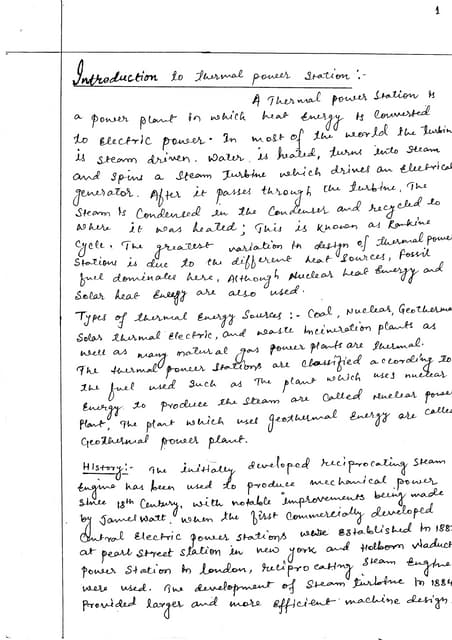 1
Introduction to Thermal power station :-
A Thermal power station is
a power plant in which heat Energy is Converted
to Electric power. In most of the world the turbin
is steam driven. Water is heated, turns into steam
and spins a steam turbine which drives an Electrical
generator. After it passes through the turbine, The
steam is Condensed in the Condenser and recycled to
where it was heated; This is known as Rankine
Cycle. The greatest variation in design of thermal power
stations is due to the different heat sources, Fossil
fuel dominates here, Although Nuclear heat Energy and
Solar heat Energy are also used.
Types of thermal Energy Sources :- Coal, Nuclear, Geotherma
Solar thermal Electric, and waste Incineration plants as
well as many natural gas power plants are thermal.
The thermal power stations are classified according to
the fuel used such as The plant which uses nuclear
Energy to produce the steam are called Nuclear power
Plant, The plant which uses geothermal Energy are calle
Geothermal power plant.
History:- The initially developed reciprocating steam
Engine has been used to produce mechanical power
since 18th Century, with notable improvements being made
by James Watt. When the first Commercially developed
Central Electric power stations were Established in 188
at pearl street station in new york and Holborn viaduct
power station in london, reciprocating steam Engine
were used. The development of steam turbine in 1884
Provided larger and more Efficient machine design